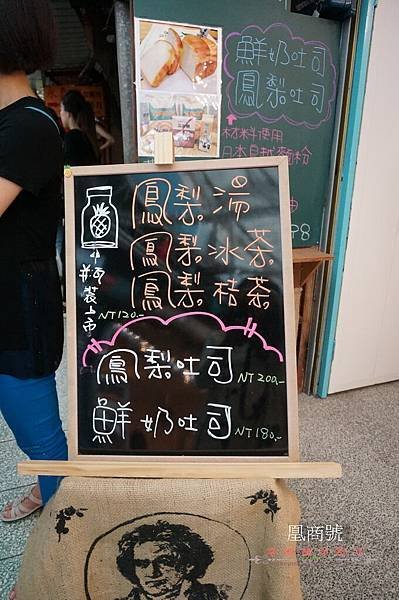 鮮奶吐司
鳳梨吐司
材料使用
日本日越麵粉
98
鳳梨湯
鳳梨冰茶
鳳梨桔茶
瓶裝上市
NT 120.-
鳳梨吐司 NT 200.-
鮮奶吐司 NT 180.-
凰商號